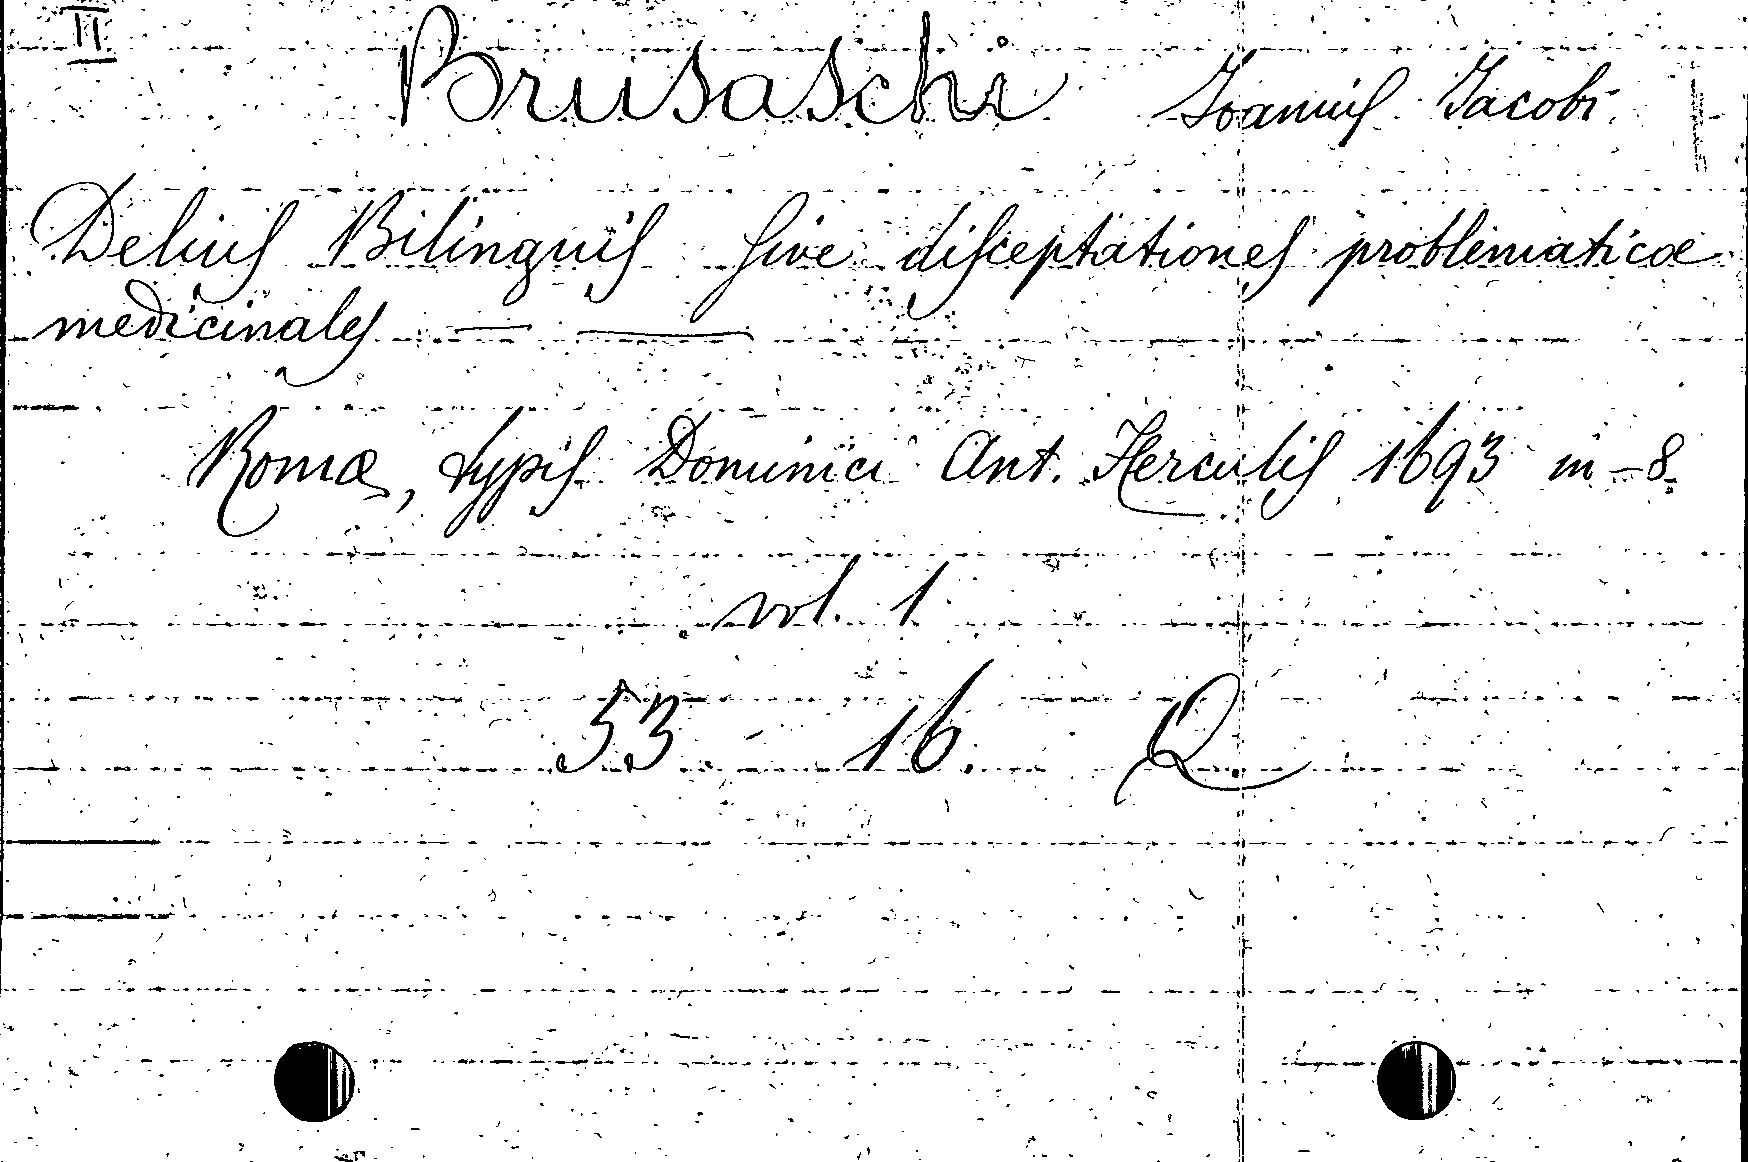 II
Brusaschi Joannis Jacobi
Delius Bilinguis sive disceptationes problematicæ
medicinales — —
Romæ, typis Dominici Ant. Herculis 1693 in-8.
vol. 1
53 - 16. Q